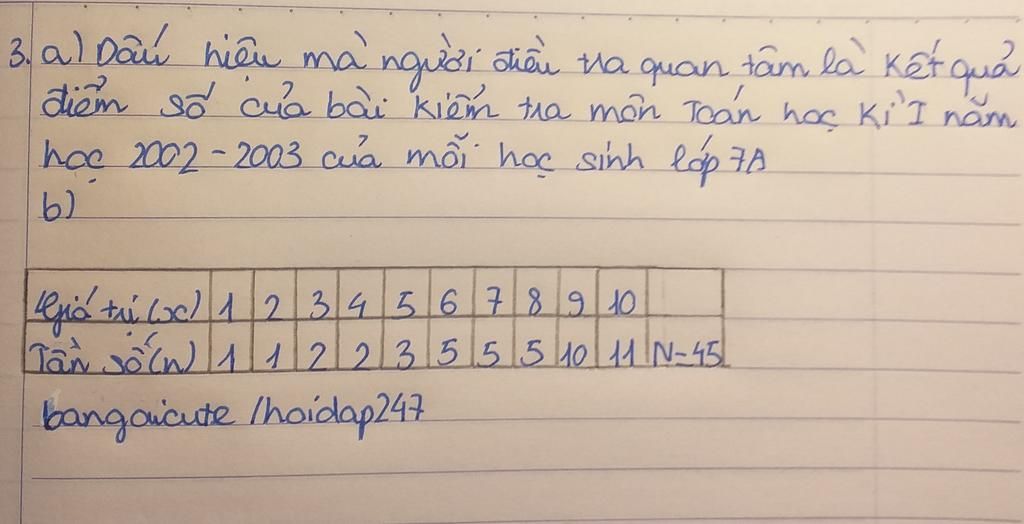 3. a) Dấu hiệu mà người điều tra quan tâm là kết quả
điểm số của bài kiểm tra môn Toán học kì I năm
học 2002 - 2003 của mỗi học sinh lớp 7A
b)
Giá trị (x) 1 2 3 4 5 6 7 8 9 10
Tần số (n) 1 1 2 2 3 5 5 5 10 11 N=45
bangaicute /hoidap247